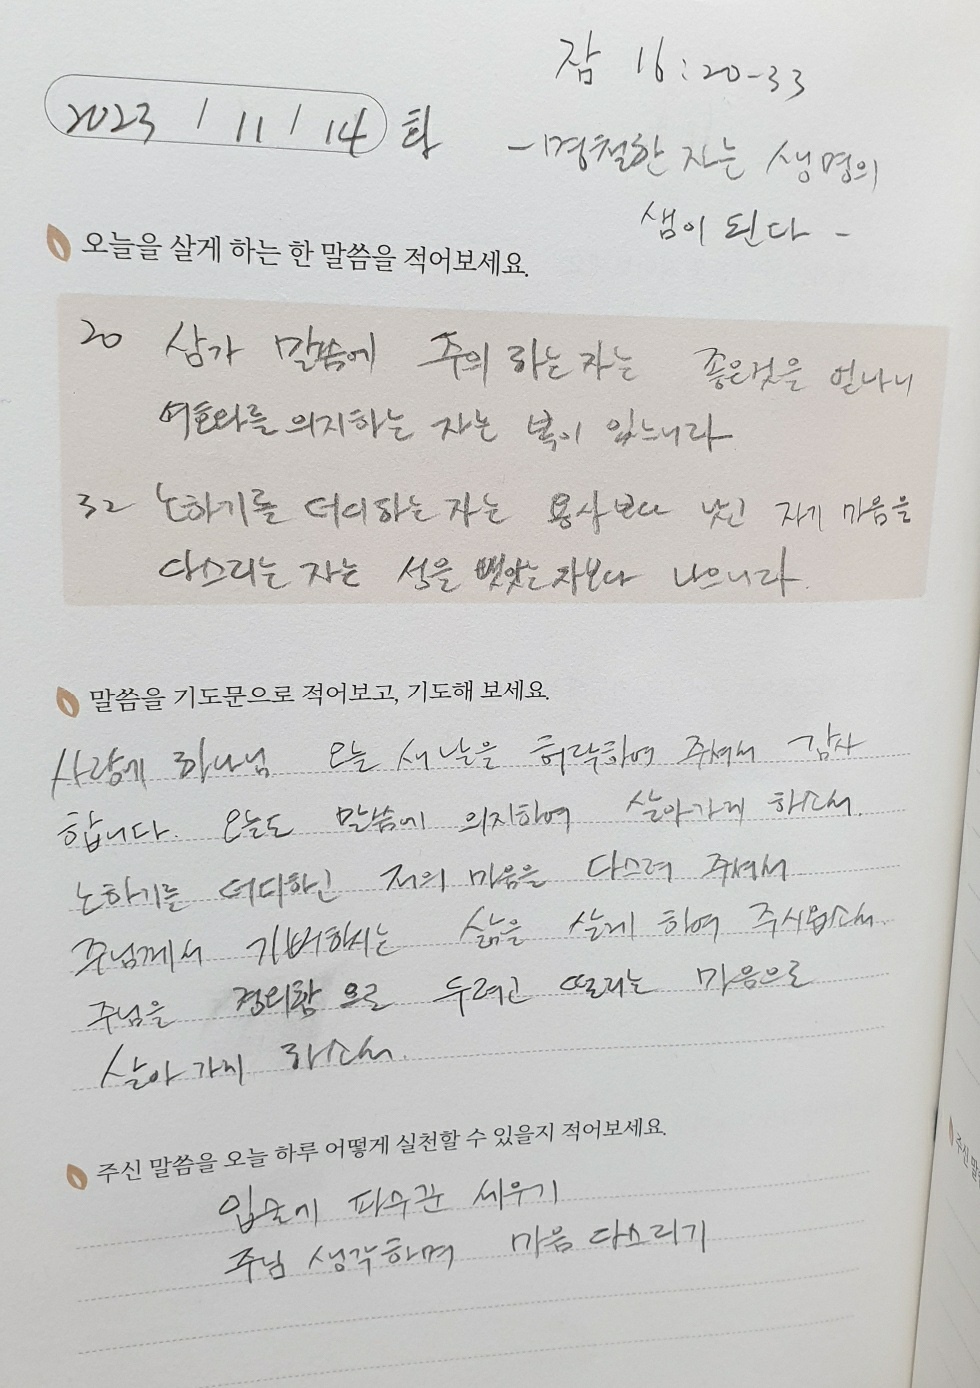 잠 16:20-33
2023 / 11 / 14 화
- 명철한 자는 생명의
샘이 된다 -
오늘을 살게 하는 한 말씀을 적어보세요.
20 삼가 말씀에 주의 하는 자는 좋은것을 얻나니
여호와를 의지하는 자는 복이 있느니라
32 노하기를 더디하는 자는 용사보다 낫고 자기 마음을
다스리는 자는 성을 빼앗는 자보다 나으니라.
말씀을 기도문으로 적어보고, 기도해 보세요.
하나님 오늘 새날을 허락하여 주셔서 감사
합니다. 오늘도 말씀에 의지하여 살아가게 하소서.
노하기를 더디하고 저의 마음을 다스려 주셔서
주님께서 기뻐하시는 삶을 살게 하여 주시옵소서.
주님을 경외함으로 두렵고 떨리는 마음으로
살아가게 하소서.
주신 말씀을 오늘 하루 어떻게 실천할 수 있을지 적어보세요.
입술에 파수꾼 세우기
주님 생각하며 마음 다스리기
주신 말씀